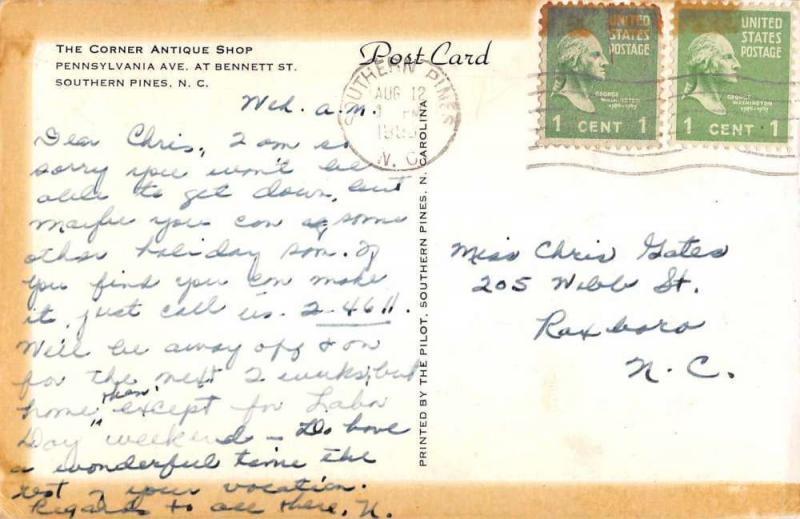 THE CORNER ANTIQUE SHOP
PENNSYLVANIA AVE. AT BENNETT ST.
SOUTHERN PINES, N. C.
Wed. a.m.
Dear Chris, I am so
sorry you won't be
able to get down, but
maybe you can some
other holiday soon. If
you find you can make
it, just call us. 2-4611.
We'll be away off & on
for the next 2 weeks, but
home then, except for Labor
Day weekend - Do have
a wonderful time the
rest of your vacation.
Regards to all there, N.
Post Card
SOUTHERN PINES
AUG 12
PM
N. C.
UNITED
STATES
POSTAGE
GEORGE
WASHINGTON
1789-1797
1 CENT 1
UNITED
STATES
POSTAGE
GEORGE
WASHINGTON
1789-1797
1 CENT 1
PRINTED BY THE PILOT, SOUTHERN PINES, N. CAROLINA
Miss Chris Gates
205 Webb St.
Roxboro
N. C.